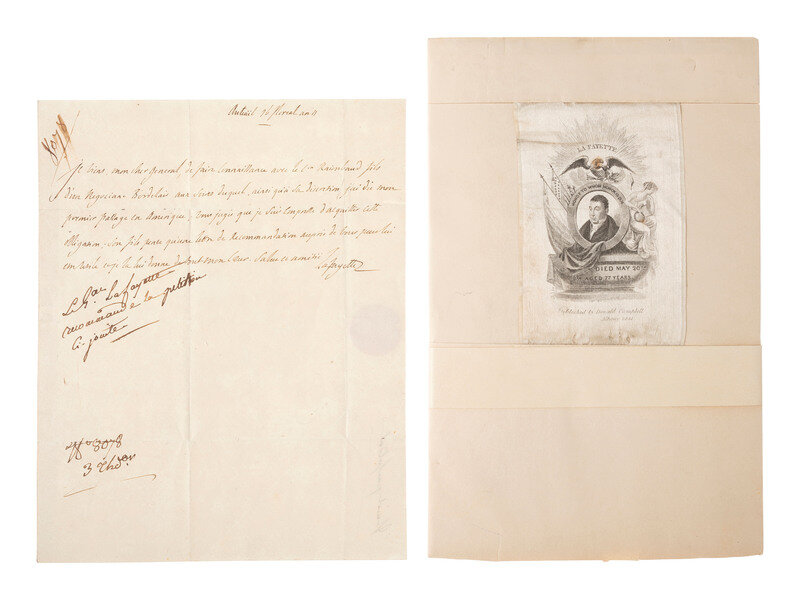 Auteuil 26 floreal an 11
8078
Je viens, mon cher general, de faire connaissance avec le Cen Raimbaud fils
d'un Negociant Bordelais aux soins duquel, ainsi qu'à sa discretion, j'ai dû mon
premier passage en Amérique; vous jugés que je suis empressé d'acquitter cette
obligation. Son fils pense qu'une lettre de recommandation auprès de vous peut lui
être utile et je la lui donne de tout mon cœur. Salut et amitié
Lafayette
Le Gal Lafayette
recommande la petition
ci-jointe
No 8078
3
LA FAYETTE
DIED MAY 20
AGED 77 YEARS
Published by Donald Campbell
Albany